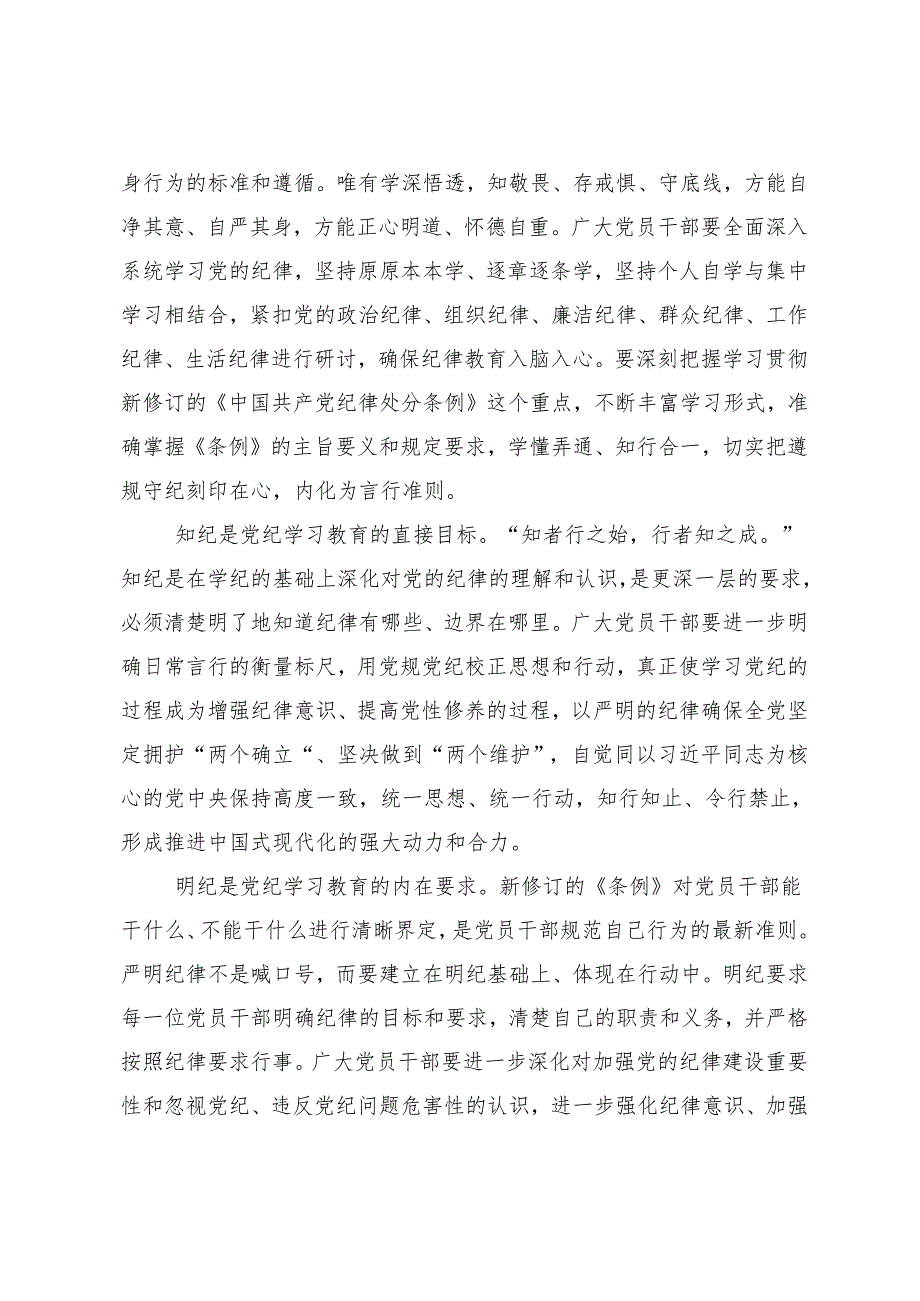 身行为的标准和遵循。唯有学深悟透，知敬畏、存戒惧、守底线，方能自
净其意、自严其身，方能正心明道、怀德自重。广大党员干部要全面深入
系统学习党的纪律，坚持原原本本学、逐章逐条学，坚持个人自学与集中
学习相结合，紧扣党的政治纪律、组织纪律、廉洁纪律、群众纪律、工作
纪律、生活纪律进行研讨，确保纪律教育入脑入心。要深刻把握学习贯彻
新修订的《中国共产党纪律处分条例》这个重点，不断丰富学习形式，准
确掌握《条例》的主旨要义和规定要求，学懂弄通、知行合一，切实把遵
规守纪刻印在心，内化为言行准则。
知纪是党纪学习教育的直接目标。“知者行之始，行者知之成。”
知纪是在学纪的基础上深化对党的纪律的理解和认识，是更深一层的要求，
必须清楚明了地知道纪律有哪些、边界在哪里。广大党员干部要进一步明
确日常言行的衡量标尺，用党规党纪校正思想和行动，真正使学习党纪的
过程成为增强纪律意识、提高党性修养的过程，以严明的纪律确保全党坚
定拥护“两个确立“、坚决做到“两个维护”，自觉同以习近平同志为核
心的党中央保持高度一致，统一思想、统一行动，知行知止、令行禁止，
形成推进中国式现代化的强大动力和合力。
明纪是党纪学习教育的内在要求。新修订的《条例》对党员干部能
干什么、不能干什么进行清晰界定，是党员干部规范自己行为的最新准则。
严明纪律不是喊口号，而要建立在明纪基础上、体现在行动中。明纪要求
每一位党员干部明确纪律的目标和要求，清楚自己的职责和义务，并严格
按照纪律要求行事。广大党员干部要进一步深化对加强党的纪律建设重要
性和忽视党纪、违反党纪问题危害性的认识，进一步强化纪律意识、加强